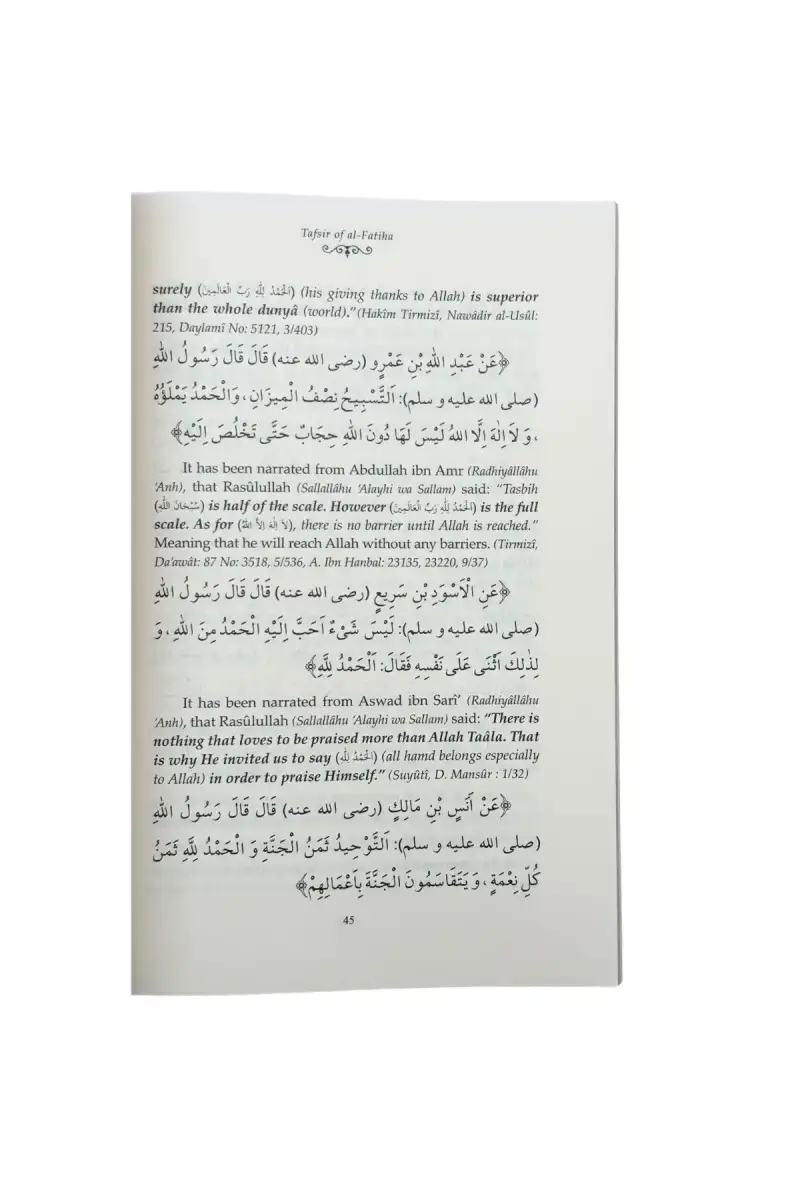 Tafsir of al-Fatiha
surely (اَلْحَمْدُ لِلّٰهِ رَبِّ الْعَالَمِينَ) (his giving thanks to Allah) is superior
than the whole dunyâ (world)." (Hakîm Tirmizî, Nawâdir al-Usûl:
215, Daylamî No: 5121, 3/403)
﴿عَنْ عَبْدِ اللّٰهِ بْنِ عَمْرٍو (رضى الله عنه) قَالَ قَالَ رَسُولُ اللّٰهِ
(صلى الله عليه و سلم): اَلتَّسْبِيحُ نِصْفُ الْمِيزَانِ، وَالْحَمْدُ يَمْلَؤُهُ
، وَ لاَ اِلٰهَ اِلَّا اللهُ لَيْسَ لَهَا دُونَ اللّٰهِ حِجَابٌ حَتَّى تَخْلُصَ اِلَيْهِ﴾
It has been narrated from Abdullah ibn Amr (Radhiyâllâhu
'Anh), that Rasûlullah (Sallallâhu 'Alayhi wa Sallam) said: "Tasbih
(سُبْحَانَ اللّٰهِ) is half of the scale. However (اَلْحَمْدُ لِلّٰهِ رَبِّ الْعَالَمِينَ) is the full
scale. As for (لاَ اِلٰهَ اِلاَّ اللّٰهُ), there is no barrier until Allah is reached."
Meaning that he will reach Allah without any barriers. (Tirmizî,
Da'awât: 87 No: 3518, 5/536, A. Ibn Hanbal: 23135, 23220, 9/37)
﴿عَنِ الْاَسْوَدِ بْنِ سَرِيعٍ (رضى الله عنه) قَالَ قَالَ رَسُولُ اللّٰهِ
(صلى الله عليه و سلم): لَيْسَ شَىْءٌ اَحَبَّ اِلَيْهِ الْحَمْدُ مِنَ اللّٰهِ، وَ
لِذٰلِكَ اَثْنَى عَلَى نَفْسِهِ فَقَالَ: اَلْحَمْدُ لِلّٰهِ﴾
It has been narrated from Aswad ibn Sarî' (Radhiyâllâhu
'Anh), that Rasûlullah (Sallallâhu 'Alayhi wa Sallam) said: "There is
nothing that loves to be praised more than Allah Taâla. That
is why He invited us to say (اَلْحَمْدُ لِلّٰهِ) (all hamd belongs especially
to Allah) in order to praise Himself." (Suyûtî, D. Mansûr : 1/32)
﴿عَنْ اَنَسِ بْنِ مَالِكٍ (رضى الله عنه) قَالَ قَالَ رَسُولُ اللّٰهِ
(صلى الله عليه و سلم): اَلتَّوْحِيدُ ثَمَنُ الْجَنَّةِ وَ الْحَمْدُ لِلّٰهِ ثَمَنُ
كُلِّ نِعْمَةٍ، وَ يَتَقَاسَمُونَ الْجَنَّةَ بِاَعْمَالِهِمْ﴾
45